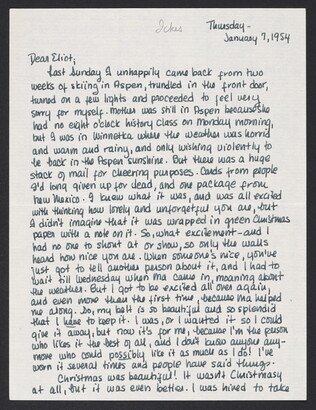 Thursday -
January 7, 1954
Dear Eliot,
Last Sunday I unhappily came back from two
weeks of skiing in Aspen, trundled in the front door,
turned on a few lights and proceeded to feel very
sorry for myself. Mother was still in Aspen because she
had no eight o'clock history class on Monday morning,
but I was in Winnetka where the weather was horrid
and warm and rainy, and only wishing violently to
be back in the Aspen sunshine. But there was a huge
stack of mail for cheering purposes. Cards from people
I'd long given up for dead, and one package from
New Mexico. I knew what it was, and was all excited
with thinking how lovely and unforgetful you are, but
I didn't imagine that it was wrapped in green Christmas
paper with a note on it. So, what excitement - and I
had no one to shout at or show, so only the walls
heard how nice you are. When someone's nice, you've
just got to tell another person about it, and I had to
wait till Wednesday when ma came in, moaning about
the weather. But I got to be excited all over again,
and even more than the first time, because ma helped
me along. So, my belt is so beautiful and so splendid
that I have to keep it. I was, or wanted it so I could
give it away, but now it's for me, because I'm the person
who likes it the best of all, and I don't know anyone any-
more who could possibly like it as much as I do! I've
worn it several times and people have said things.
Christmas was beautiful! It wasn't Christmasy
at all, but it was even better. I was hired to take